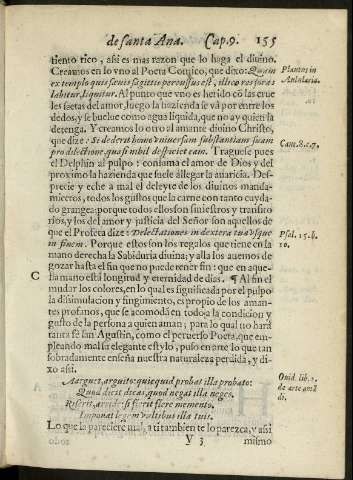 de santa Ana. Cap. 9. 155
tiento rico, asi es mas razon que lo haga el diuino.
Creamos en lo vno al Poeta Comico, que dixo: Quem
ex templo quis senis sagittis percussus est, illico res foras
labitur, liquitur. Al punto que vno es herido cō las crue
les saetas del amor, luego la hazienda se vá por entre los
dedos, y se buelue como agua liquida, que no ay quien la
detenga. Y creamos lo otro al amante diuino Christo,
que dize: Si dederit homo vniuersam substantiam suam
pro dilectione quasi nihil despiciet eam. Traguese pues
el Delphin al pulpo: consuma el amor de Dios y del
proximo la hazienda que suele allegar la auaricia. Des-
precie y eche a mal el deleyte de los diuinos manda-
mientos, todos los gustos que la carne con tanto cuyda-
do grangea: porque todos ellos son siniestros y transito
rios, y los del amor y justicia del Señor son aquellos de
que el Profeta dize: Delectationes in dextera tua vsque
in finem. Porque estos son los regalos que tiene en la
mano derecha la Sabiduria diuina; y alla los auemos de
gozar hasta el fin que no puede tener fin: que en aque-
lla mano está longitud y eternidad de dias. ¶ Al fin el
C
mudar los colores, en lo qual es significada por el pulpo
la disimulacion y fingimiento, es propio de los aman-
tes profanos, que se acomodā en todo a la condicion y
gusto de la persona a quien aman; para lo qual no hará
tanta fè san Agustin, como el peruerso Poeta, que em-
pleando mal su elegante estylo, puso en arte lo que tan
sobradamente enseña nuestra naturaleza perdida, y di-
xo assi.
Aarguet, arguito: quicquid probat illa probato:
Quod dicit dicas, quod negat illa neges.
Riserit, arride: si flerit flere memento.
Imponat legem vultibus illa tuis.
Lo que la pareciere mal, a ti tambien te lo parezca, y asi
V 3 mismo
Plautus in
Aulularia.
Cant. 8. c. 7.
Psal. 15. b.
10.
Ouid. lib. 2.
de arte amā
di.